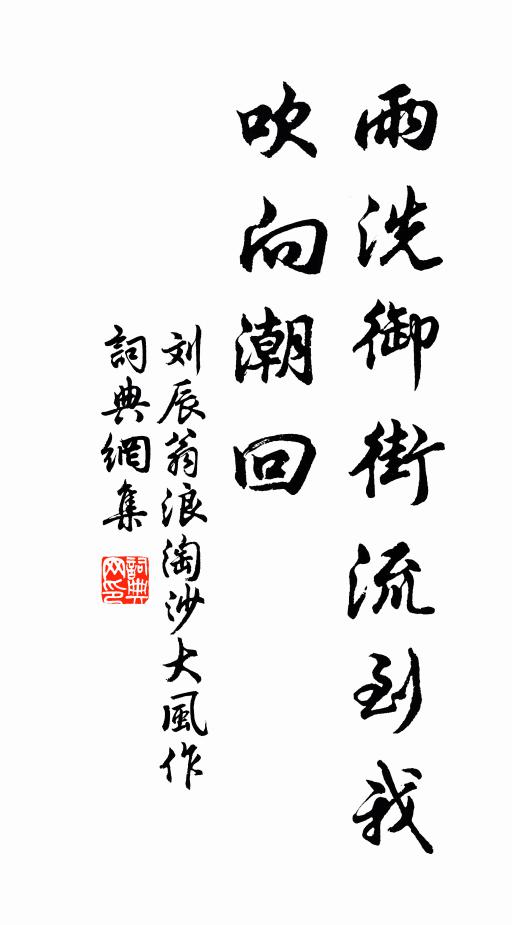 雨洗御街流到我
吹向潮回
刘辰翁浪淘沙大風作
詞典網集
詞典网印